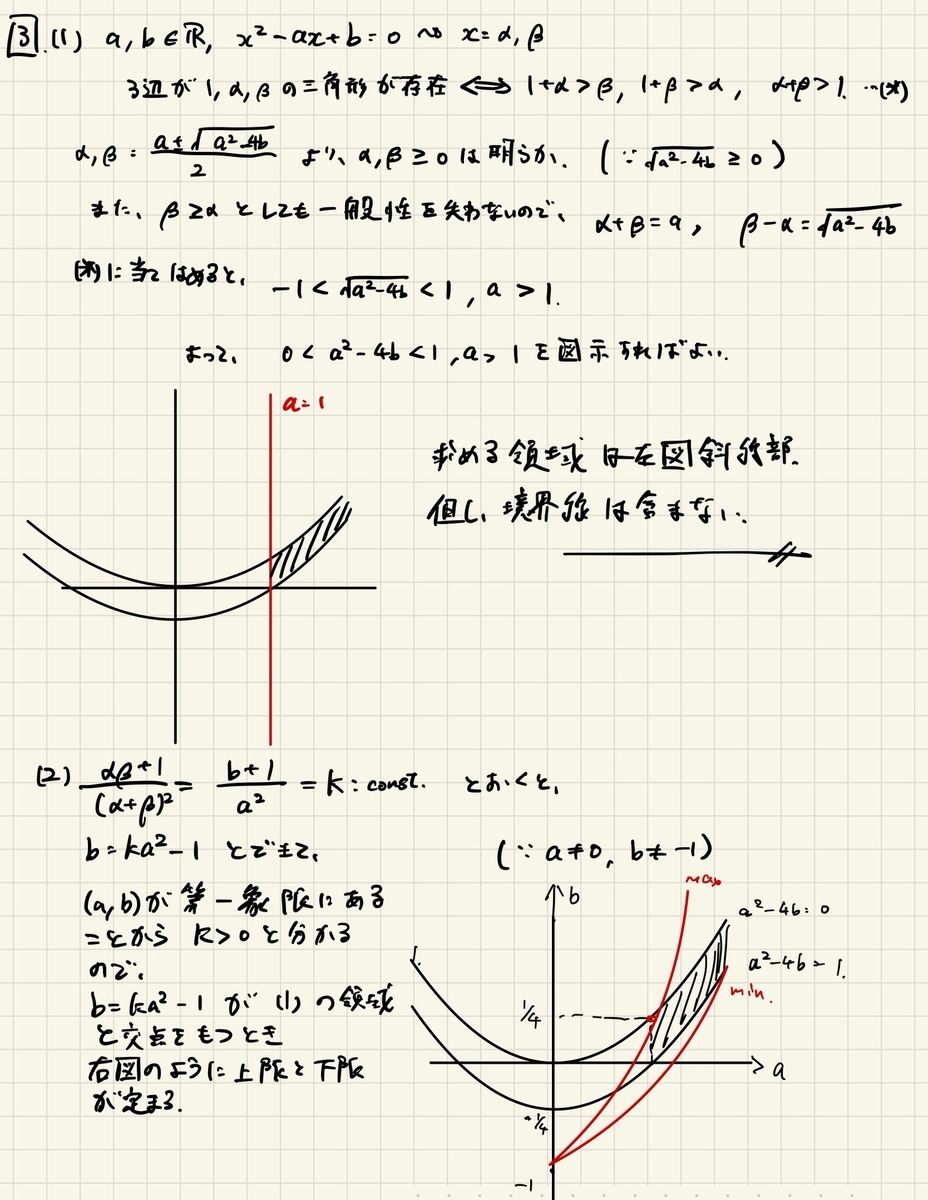 [3]. (1) a, b ∈ ℝ, x² - ax + b = 0 ⇝ x = α, β
3辺が 1, α, β の三角形が存在 ⇔ 1+α > β, 1+β > α, α+β > 1. …(*)
α, β = (a ± √(a²-4b)) / 2 より、α, β ≥ 0 は明らか. (∵ √(a²-4b) ≥ 0)
また、β ≥ α としても一般性を失わないので、 α+β = a, β-α = √(a²-4b)
(*)に当てはめると、 -1 < √(a²-4b) < 1, a > 1.
よって、 0 < a²-4b < 1, a > 1 を図示すればよい.
a = 1
求める領域は左図斜線部.
但し、境界線は含まない.
(2) (αβ+1) / (α+β)² = (b+1) / a² = k : const. とおくと、
b = ka² - 1 とできて、 (∵ a ≠ 0, b ≠ -1)
(a, b) が第一象限にある
ことから k > 0 と分かる
ので、
b = ka² - 1 が (1) の領域
と交点をもつとき
右図のように上限と下限
が定まる.
max
b
a²-4b = 0
a²-4b = 1.
min.
1/4
a
-1/4
-1